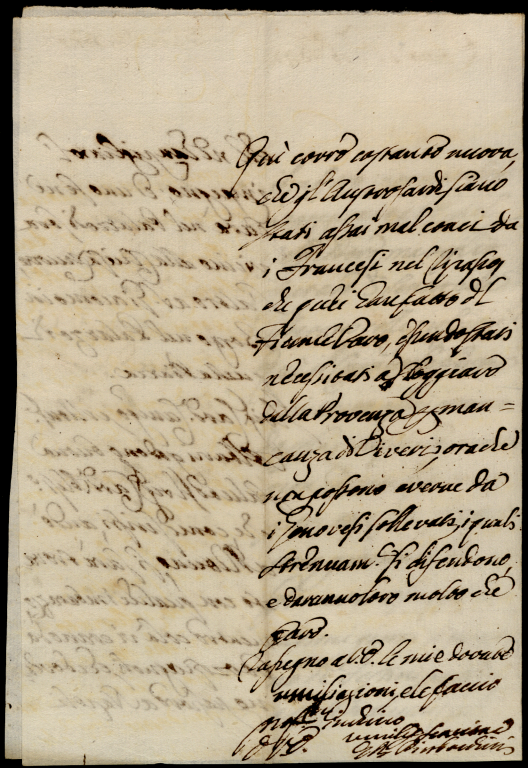 Qui corre costante nuova,
che gl'Austrosardi siano
stati assai mal conci da
i Francesi nel ripasso
che pure han fatto del
Fiume Varo, essendo stati
necessitati a sloggiare
dalla Provenza per man=
canza di Viveri, ora che
non possono averne da
i Genovesi sollevati, i quali
strenuam.te si difendono,
e daranno loro molto che
fare.
Rassegno a V.S. le mie dovute
umiliazioni, e le faccio
inchino
di V.S.